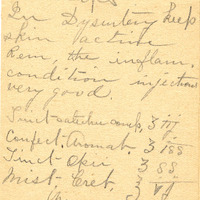 In Dysentery keep
skin active
Rem, the inflam.
condition injections
very good.
Tinct-catechu comp, ʒ iij
Confect. Aromat. ʒ iss
Tinct- Opii ʒ ss.
Mist- Cret. ʒ vi